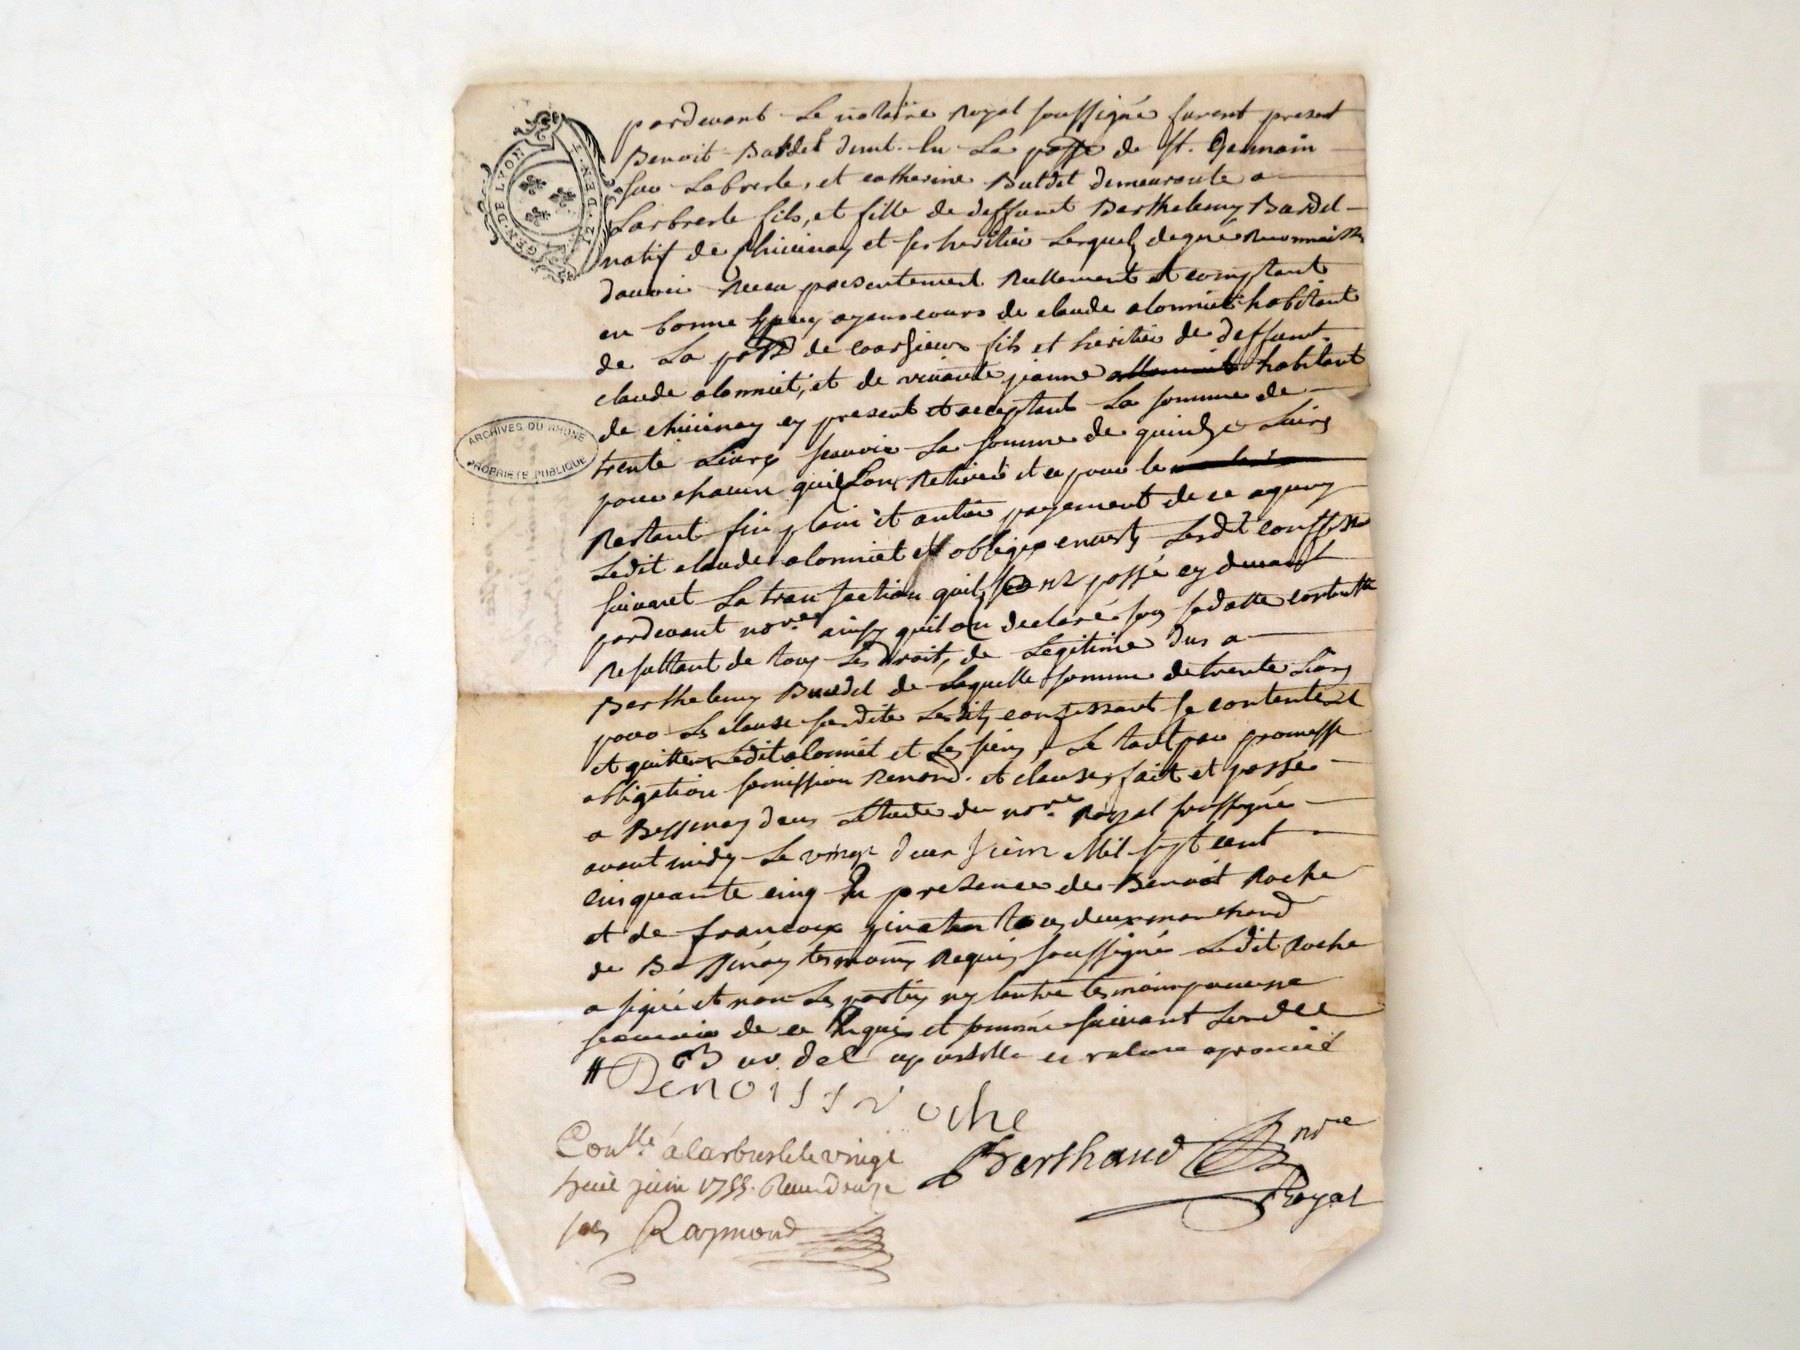 GEN. DE LYON
12. DEN. T.
ARCHIVES DU RHÔNE
PROPRIÉTÉ PUBLIQUE
pardevant Le notaire Royal soussigné furent present
Benoit Burdel demt. En La psse de St. Germain
sur Labresle, et catherine Burdel demeurante a
Larbresle fils, et fille de deffunct Barthelemy Burdel
natif de chivinay et ses heritier Lesquels de gré
davoir Receu presentement Reellement et comptant
en bonne Especes ayans cours de claude alonniet habitant
de La psse de coursieux fils et heritier de deffunt
claude alonniet, et de vivante jeanne habitant
de chivinay cy present et acceptant La somme de
trente Livres scavoir La somme de quindze Livres
pour chacun quils ont Retirés et ce pour le
Restant fin plain et entier payement de ce aquoy
Ledit claude alonniet obligé envers Lesdit
suivant La transaction quils ont passé cy devant
pardevant nore. ainsy quil ont declaré sous sa datte
Resultant de tous Les droits de Legitime dus a
Barthelemy Burdel de Laquelle somme de trente Livres
pour Les clause susdite Lesdits confessant se contentent
et quittent Ledit alonniet et Les siens, Le tout par promesse
obligation soumission Renond. et clauses, fait et passé
a Bessenay dans Letude du nore. Royal soussigné
avant midy Le vingt deux juin Mil sept cent
cinquante cinq En presence de Benoit Roche
et de francois tous deux marchand
de Bessenay temoins Requis soussigné Ledit Roche
a signé et non Les parties ny lautre temoin pour ne
scavoir de ce Requis et sommé suivant Lordce
# Burdel apostille et rature aprouvé
Benoist Roche
Conlle. a larbresle le vingt
huit juin 1755. Receu douze
sols Raymond
Berthaud nore
Royal